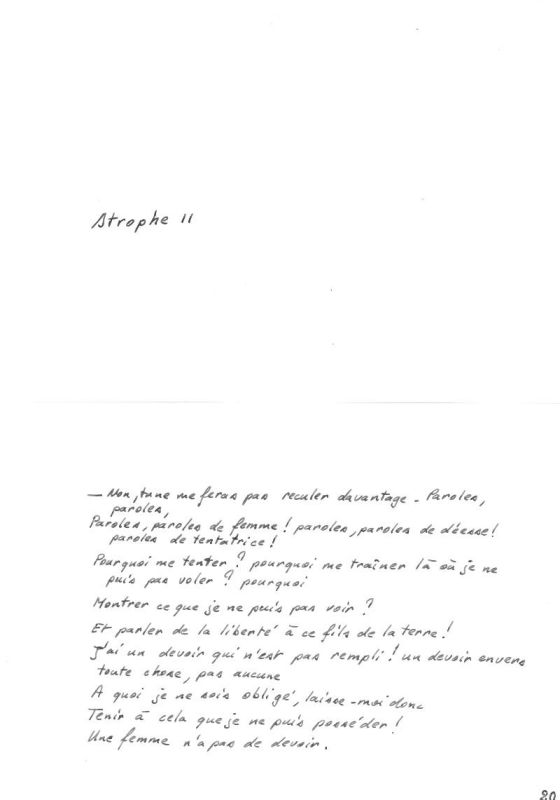 Strophe II
— Non, tu ne me feras pas reculer davantage. Paroles,
paroles,
Paroles, paroles de femme ! paroles, paroles de déesse !
paroles de tentatrice !
Pourquoi me tenter ? pourquoi me traîner là où je ne
puis pas voler ? pourquoi
Montrer ce que je ne puis pas voir ?
Et parler de la liberté à ce fils de la terre !
J'ai un devoir qui n'est pas rempli ! un devoir envers
toute chose, pas aucune
A quoi je ne sois obligé, laisse-moi donc
Tenir à cela que je ne puis posséder !
Une femme n'a pas de devoir.
20